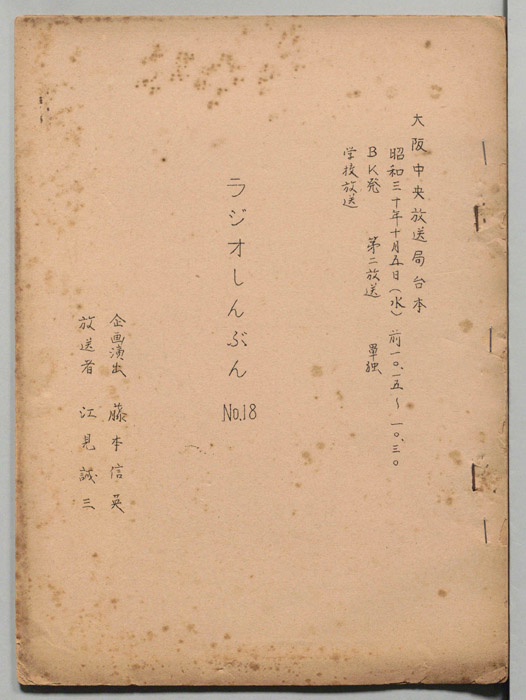 大阪中央放送局台本
昭和三十年十月五日(水) 前一〇.一五〜一〇.三〇
BK発 第二放送 單独
学校放送
ラジオしんぶん No.18
企画演出 藤本信英
放送者 江見誠三